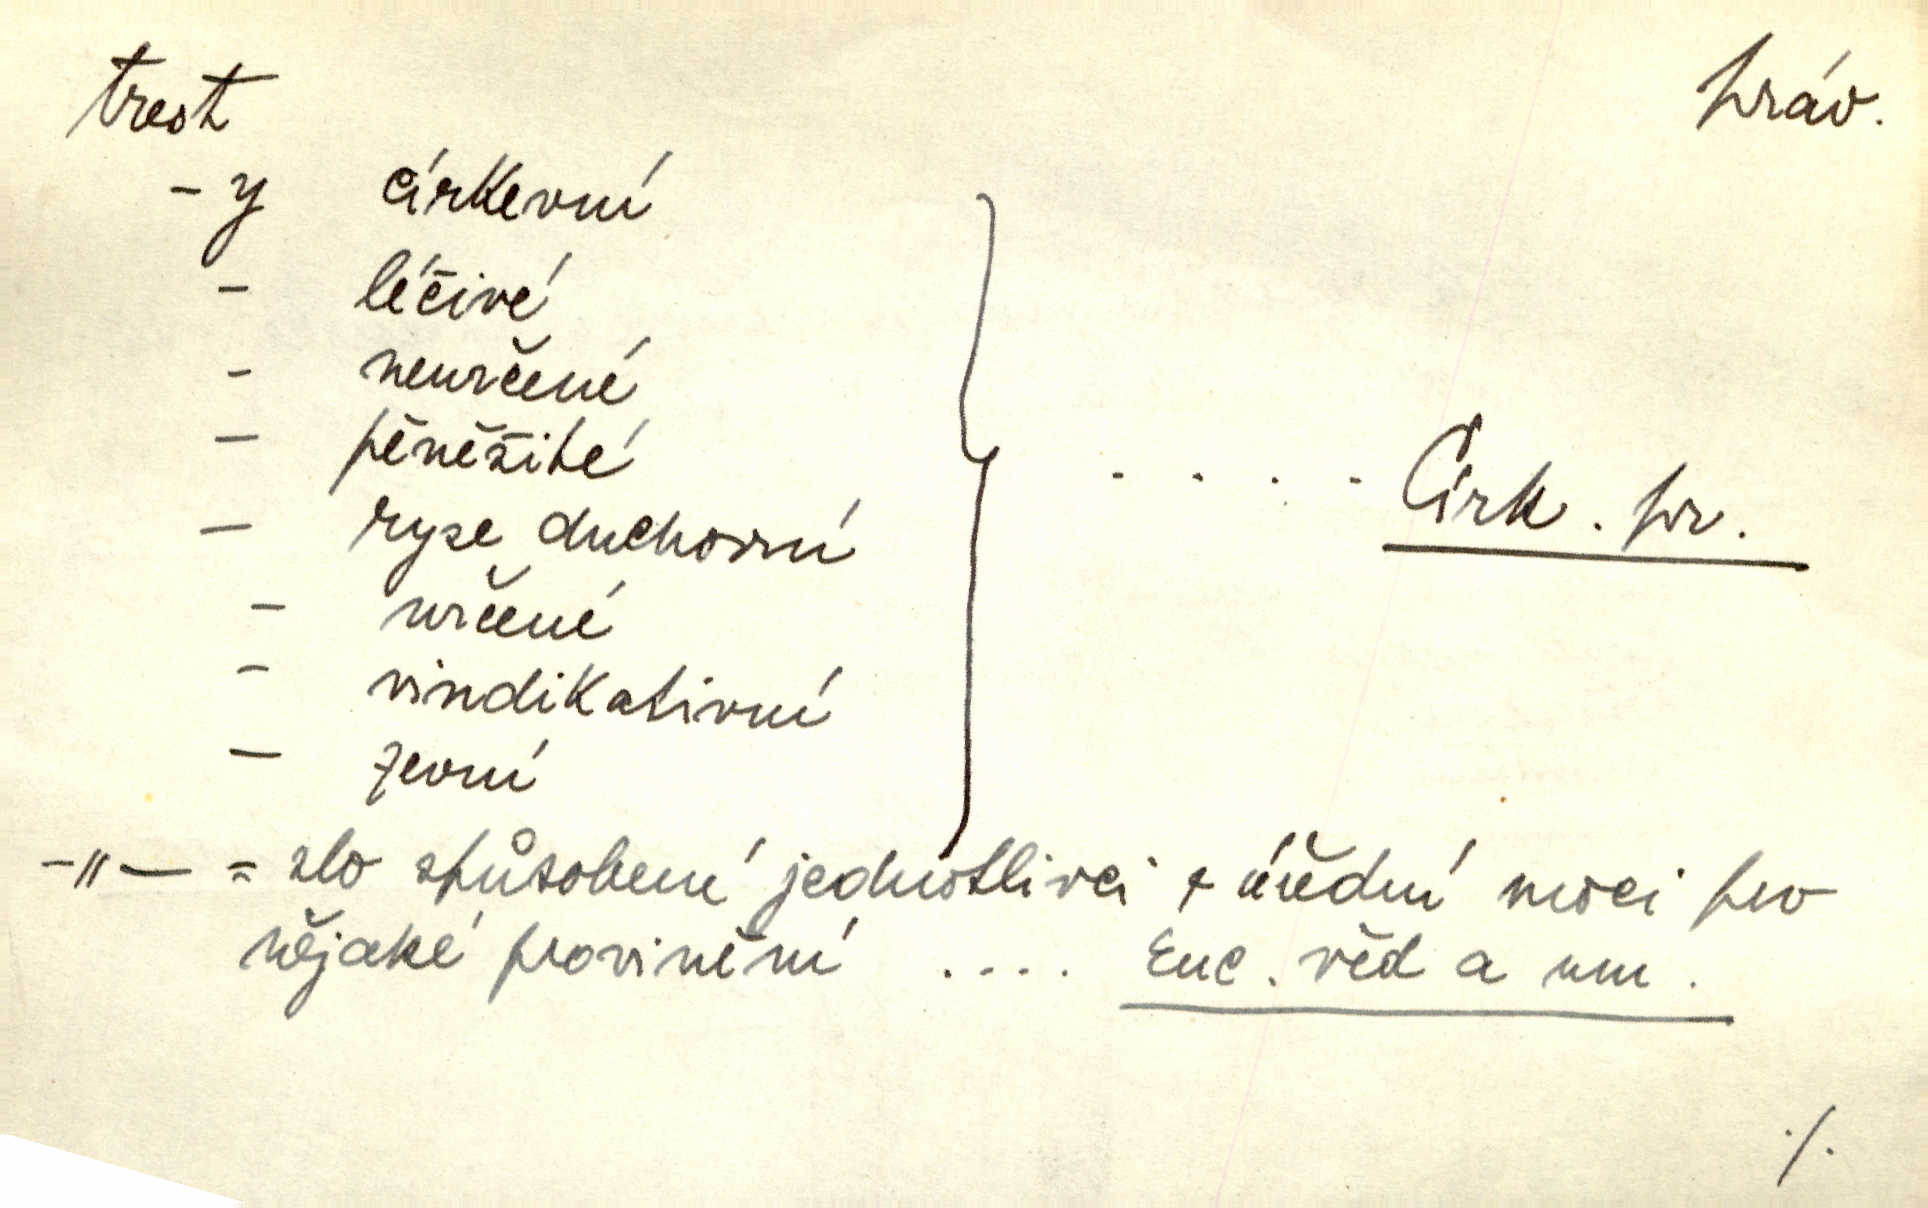 trest práv.
- y církevní
- léčivé
- neurčené
- pěněžité
- ryze duchovní . . . . Círk. pr.
- určené
- vindikativní
- zevní
-"- = zlo způsobené jednotlivci z úřední moci pro
nějaké provinění .... Enc. věd a um.
./.